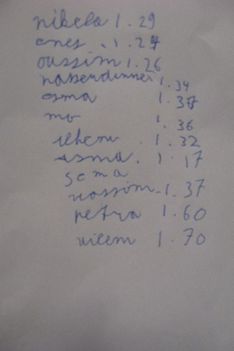 nikela 1.29
enes 1.27
oussim 1.26
nasserdinne 1.34
asma 1.37
mo 1.36
ilhem 1.32
asma 1.17
sema
wassim 1.37
petra 1.60
vilem 1.70